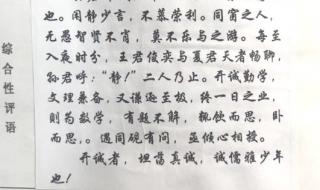 综合性评语
也。闲静少言，不慕荣利。同窗之人，
无愚智贤不肖，莫不乐与之游。每至
入夜时分，王君俊奕与夏君天者畅聊，
孙君呼：“静！”二人乃止。开诚勤学，
文理兼备，又谦逊至极，终一日之业，
则为数学，有题不解，辄独而思，卧
而思。遇同砚有问，亟倾心相授。
开诚者，坦荡真诚，诚儒雅少年
也！